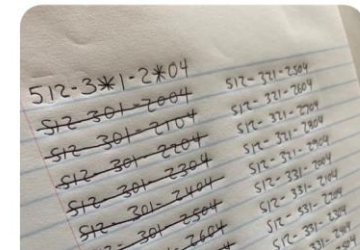 512-3*1-2*04
512-301-2004
512-301-2104
512-301-2204
512-301-2304
512-301-2404
512-301-2504
301-2604
512-321-2504
512-321-2604
512-321-2704
512-321-2804
512-321-2904
512-331-2004
512-331-2104
512-331-2204